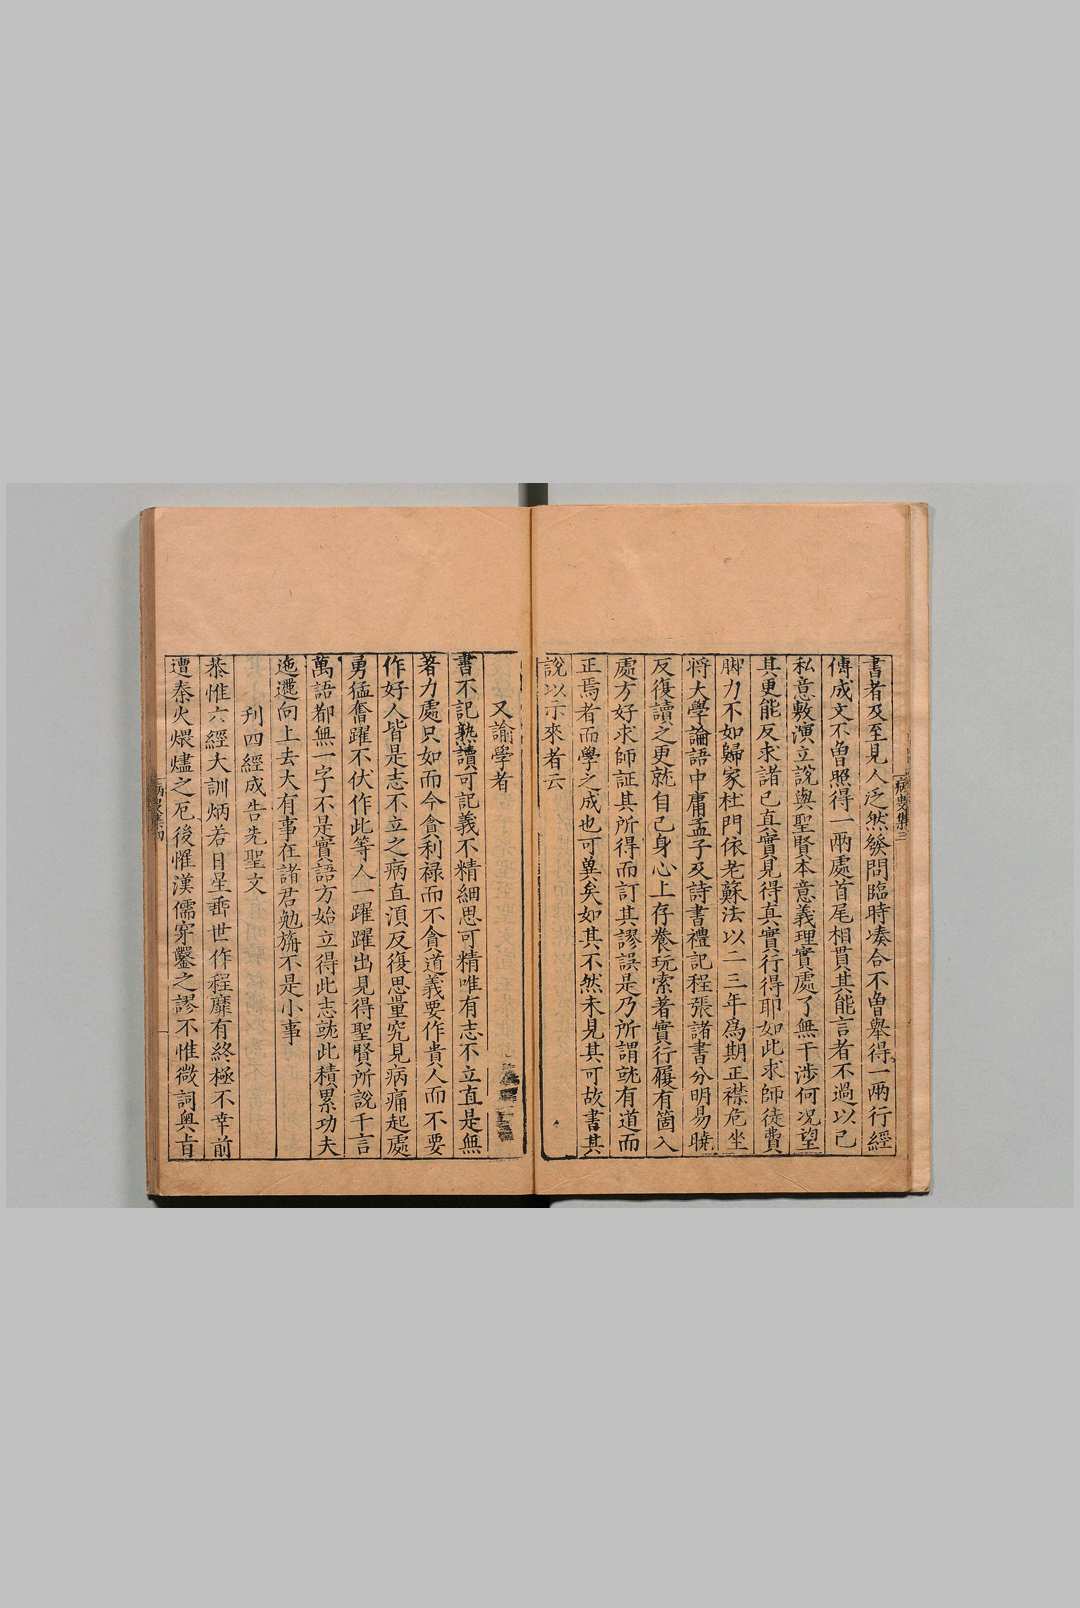 書者及至見人泛然發問臨時湊合不曾舉得一兩行經
傳成文不曾照得一兩處首尾相貫其能言者不過以己
私意敷演立說與聖賢本意義理實處了無干涉何况望
其更能反求諸己真實見得真實行得耶如此求師徒費
脚力不如歸家杜門依老蘇法以二三年爲期正襟危坐
將大學論語中庸孟子及詩書禮記程張諸書分明易曉
反復讀之更就自己身心上存養玩索著實行履有箇入
處方好求師証其所得而訂其謬誤是乃所謂就有道而
正焉者而學之成也可冀矣如其不然未見其可故書其
說以示來者云
又諭學者
書不記熟讀可記義不精細思可精唯有志不立直是無
著力處只如而今貪利禄而不貪道義要作貴人而不要
作好人皆是志不立之病直湏反復思量究見病痛起處
勇猛奮躍不伏作此等人一躍躍出見得聖賢所說千言
萬語都無一字不是實語方始立得此志就此積累功夫
迤邐向上去大有事在諸君勉旃不是小事
刋四經成告先聖文
恭惟六經大訓炳若日星垂世作程靡有終極不幸前
遭秦火煨燼之厄後罹漢儒穿鑿之謬不惟微詞奥旨